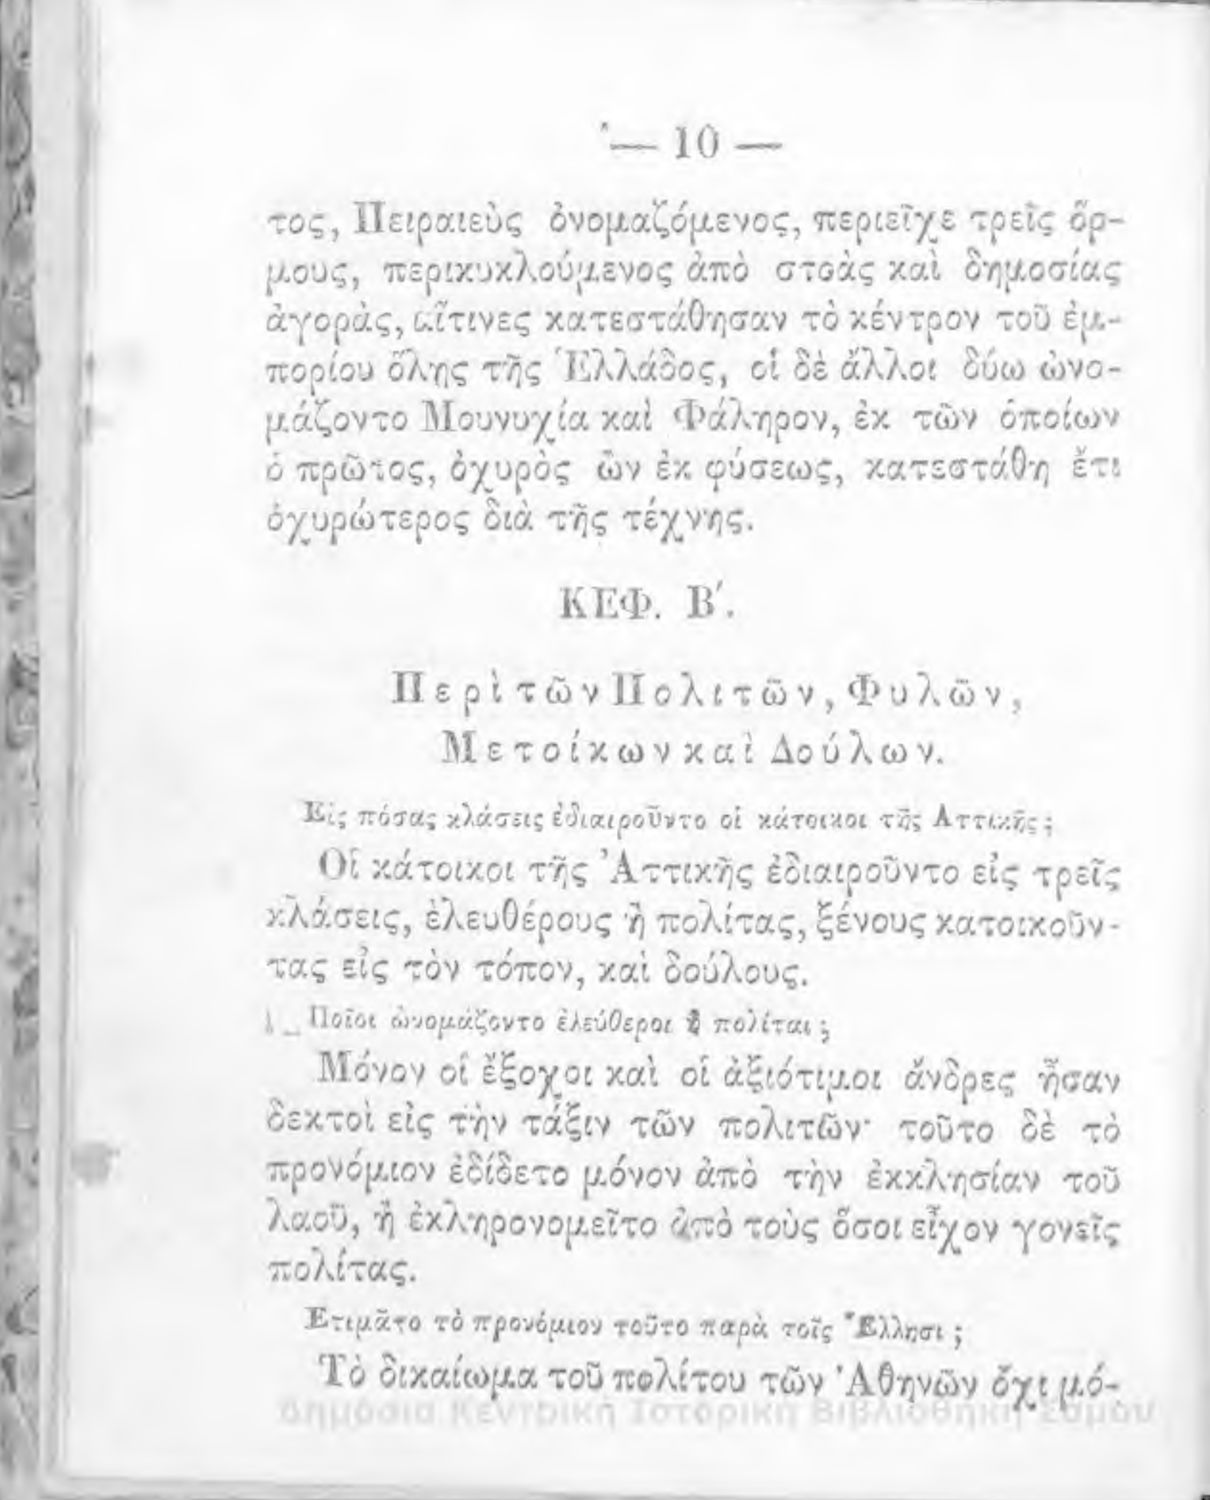 — 10 —
τος, Πειραιεὺς ὀνομαζόμενος, περιεῖχε τρεῖς ὅρ-
μους, περικυκλούμενος ἀπὸ στοὰς καὶ δημοσίας
ἀγορὰς, αἵτινες κατεστάθησαν τὸ κέντρον τοῦ ἐμ-
πορίου ὅλης τῆς Ἑλλάδος, οἱ δὲ ἄλλοι δύω ὠνο-
μάζοντο Μουνυχία καὶ Φάληρον, ἐκ τῶν ὁποίων
ὁ πρῶτος, ὀχυρὸς ὢν ἐκ φύσεως, κατεστάθη ἔτι
ὀχυρώτερος διὰ τῆς τέχνης.
ΚΕΦ. Β΄.
Περὶ τῶν Πολιτῶν, Φυλῶν,
Μετοίκων καὶ Δούλων.
Εἰς πόσας κλάσεις ἐδιαιροῦντο οἱ κάτοικοι τῆς Ἀττικῆς;
Οἱ κάτοικοι τῆς Ἀττικῆς ἐδιαιροῦντο εἰς τρεῖς
κλάσεις, ἐλευθέρους ἢ πολίτας, ξένους κατοικοῦν-
τας εἰς τὸν τόπον, καὶ δούλους.
Ποῖοι ὠνομάζοντο ἐλεύθεροι ἢ πολίται;
Μόνον οἱ ἔξοχοι καὶ οἱ ἀξιότιμοι ἄνδρες ἦσαν
δεκτοὶ εἰς τὴν τάξιν τῶν πολιτῶν· τοῦτο δὲ τὸ
προνόμιον ἐδίδετο μόνον ἀπὸ τὴν ἐκκλησίαν τοῦ
λαοῦ, ἢ ἐκληρονομεῖτο ἀπὸ τοὺς ὅσοι εἶχον γονεῖς
πολίτας.
Ετιμᾶτο τὸ προνόμιον τοῦτο παρὰ τοῖς Ἕλλησι;
Τὸ δικαίωμα τοῦ πολίτου τῶν Ἀθηνῶν ὄχι μό-
Δημόσια Κεντρική Ιστορική Βιβλιοθήκη Σάμου